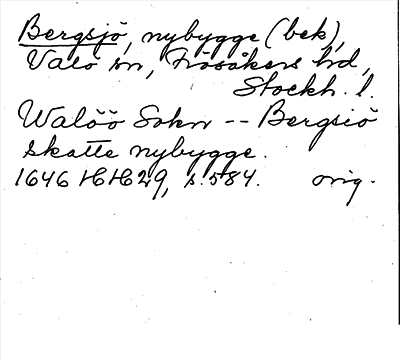 Bergsjö, nybygge (bek),
Valö sn, Frösåkers hd,
Stockh. l.
Walöö Sokn -- Bergsiö
skatte nybygge.
1646 HH29, s. 584. orig.